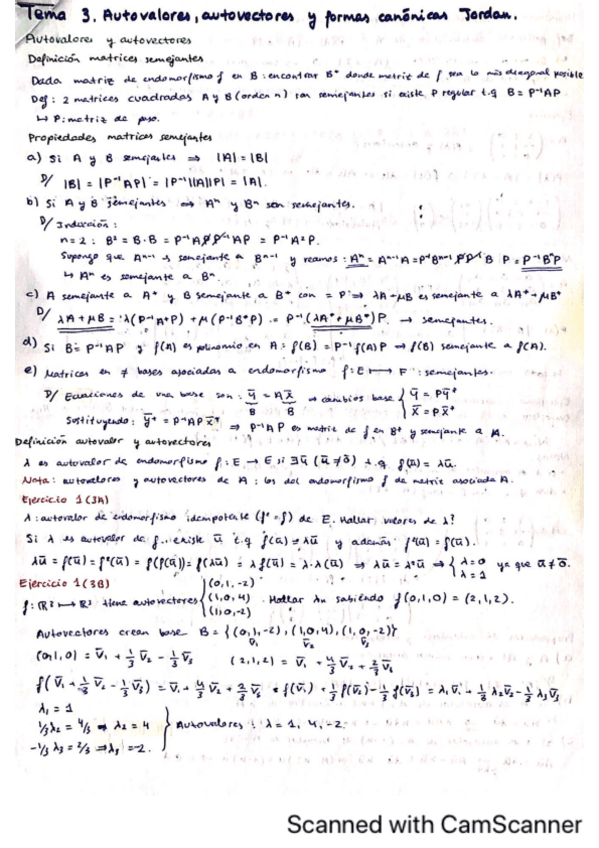 Tema 3. Autovalores, autovectores y formas canónicas Jordan.
Autovalores y autovectores
Definición matrices semejantes
Dada matriz de endomorfismo f en B: encontrar B* donde matriz de f sea lo más diagonal posible
Def: 2 matrices cuadradas A y B (orden n) son semejantes si existe P regular t.q B = P⁻¹AP
↳ P: matriz de paso.
Propiedades matrices semejantes
a) Si A y B semejantes ⇒ |A| = |B|
D/ |B| = |P⁻¹AP| = |P⁻¹||A||P| = |A|.
b) Si A y B semejantes ⇒ Aⁿ y Bⁿ son semejantes.
D/ Inducción:
n=2: B² = B·B = P⁻¹APP⁻¹AP = P⁻¹A²P.
Supongo que Aⁿ⁻¹ es semejante a Bⁿ⁻¹ y veamos: Aⁿ = Aⁿ⁻¹A = P⁻¹Bⁿ⁻¹PP⁻¹B P = P⁻¹BⁿP
↳ Aⁿ es semejante a Bⁿ.
c) A semejante a A* y B semejante a B* con = P ⇒ λA+μB es semejante a λA*+μB*
D/ λA+μB = λ(P⁻¹A*P) + μ(P⁻¹B*P) = P⁻¹(λA*+μB*)P → semejantes.
d) Si B = P⁻¹AP y f(A) es polinomio en A: f(B) = P⁻¹f(A)P ⇒ f(B) semejante a f(A).
e) Matrices en ≠ bases asociadas a endomorfismo f: E ⟼ F : semejantes.
D/ Ecuaciones de una base son: ȳ = Ax̄ ⇒ cambios base { ȳ = Pȳ*
B B x̄ = Px̄*
Sustituyendo: ȳ* = P⁻¹APx̄* ⇒ P⁻¹AP es matriz de f en B* y semejante a A.
Definición autovalor y autovectores
λ es autovalor de endomorfismo f: E → E si ∃ū (ū ≠ ō) t.q. f(ū) = λū.
Nota: autovalores y autovectores de A : los del endomorfismo f de matriz asociada A.
Ejercicio 1 (3A)
λ: autovalor de endomorfismo idempotente (f² = f) de E. Hallar valores de λ?
Si λ es autovalor de f... existe ū t.q f(ū) = λū y además f²(ū) = f(ū).
λū = f(ū) = f²(ū) = f(f(ū)) = f(λū) = λf(ū) = λ·λ(ū) ⇒ λū = λ²ū ⇒ { λ=0 ya que ū ≠ ō.
λ=1
Ejercicio 1 (3B)
(0,1,-2)
f: ℝ³ ⟼ ℝ³ tiene autovectores { (1,0,4) . Hallar λn sabiendo f(0,1,0) = (2,1,2).
(1,0,-2)
Autovectores crean base B = {(0,1,-2), (1,0,4), (1,0,-2)}
v̄₁ v̄₂ v̄₃
(0,1,0) = v̄₁ + 1/3 v̄₂ - 1/3 v̄₃ (2,1,2) = v̄₁ + 4/3 v̄₂ + 2/3 v̄₃
f(v̄₁ + 1/3 v̄₂ - 1/3 v̄₃) = v̄₁ + 4/3 v̄₂ + 2/3 v̄₃ = f(v̄₁) + 1/3 f(v̄₂) - 1/3 f(v̄₃) = λ₁v̄₁ + 1/3 λ₂v̄₂ - 1/3 λ₃v̄₃
λ₁ = 1
1/3 λ₂ = 4/3 ⇒ λ₂ = 4 } Autovalores : λ = 1, 4, -2.
-1/3 λ₃ = 2/3 ⇒ λ₃ = -2.
Scanned with CamScanner